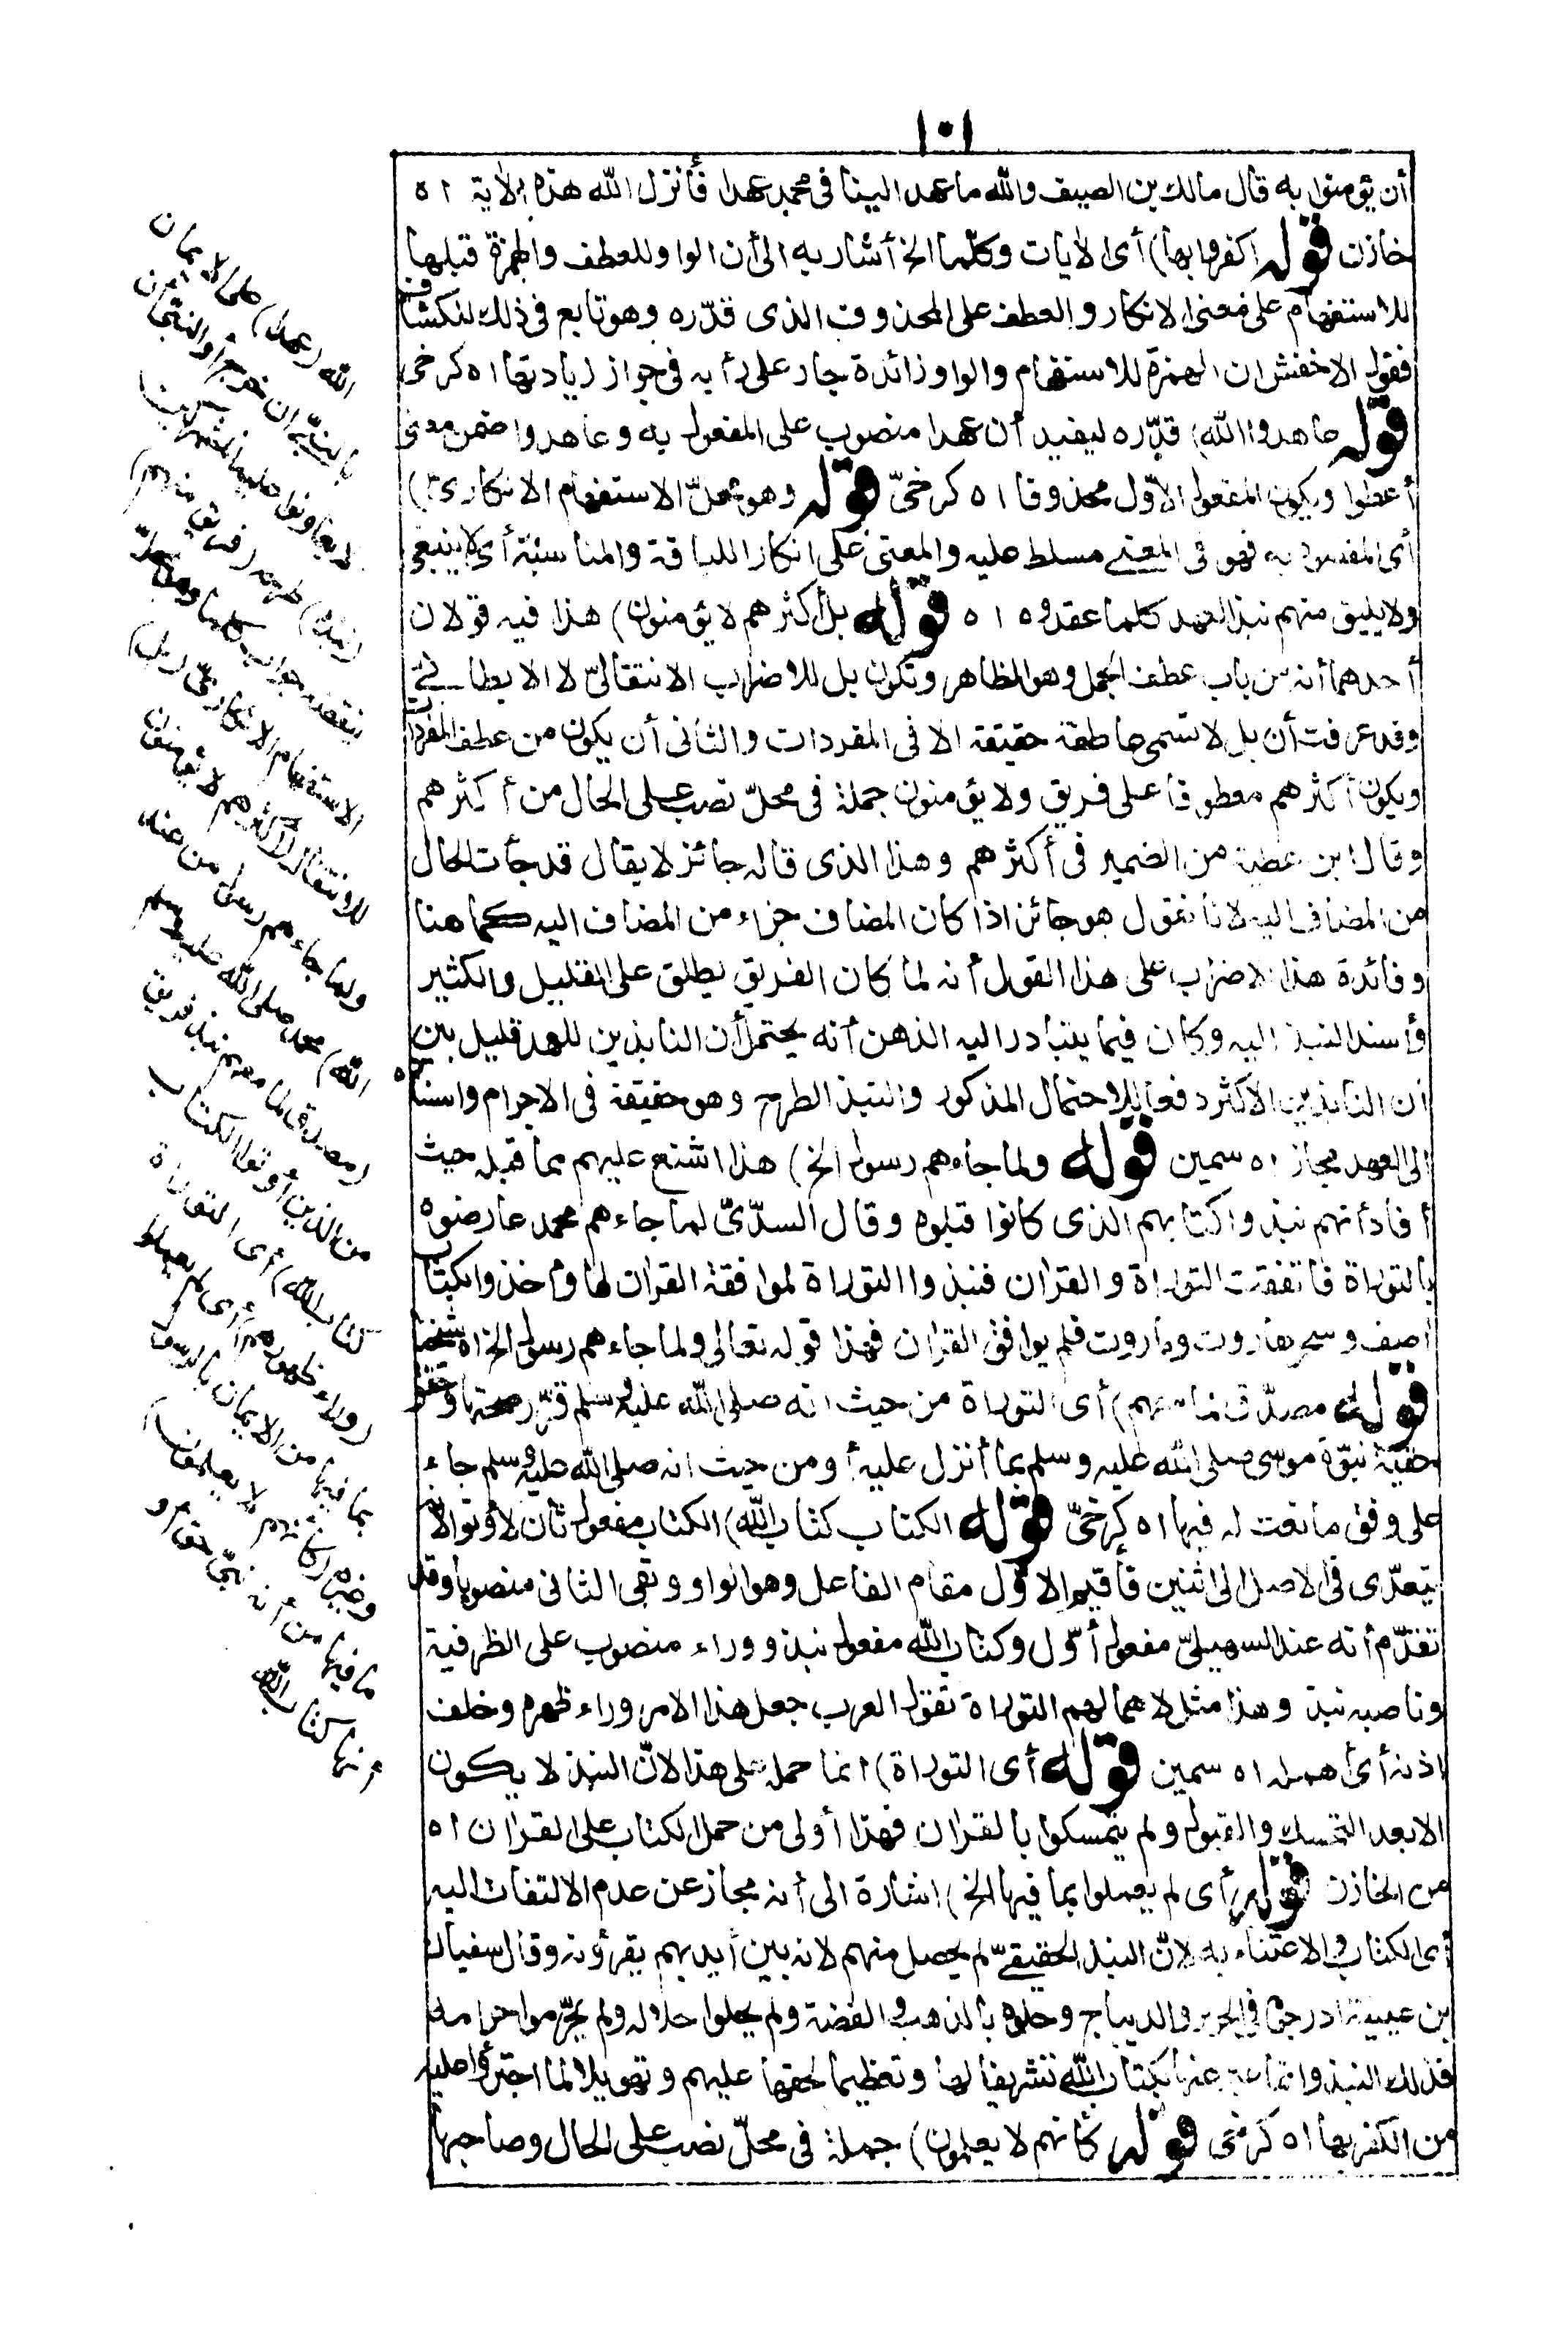 ١٠١
أن يؤمنوا به قال مالك بن الصيف والله ما عهد الينا فى محمد عهدا فأنزل الله هذه الآية ا ه
خازن قوله اكفروا بها) أى الآيات وكلما الخ أشار به الى أن الواو للعطف والهمزة قبلها
للاستفهام على معنى الانكار والعطف على المحذوف الذى قدّره وهو تابع فى ذلك للكشاف
فقول الاخفش ان الهمزة للاستفهام والواو زائدة جار على رأيه فى جواز زيادتها ا ه كرخى
قوله عاهدوا الله) قدّره ليفيد أن عهدا منصوب على المفعول به وعاهدوا ضمن معنى
أعطوا ويكون المفعول الاوّل محذوفا ا ه كرخىّ قوله وهو محلّ الاستفهام الانكارىّ)
أى المقصود به فهو فى المعنى مسلط عليه والمعنى على انكار اللياقة والمناسبة أى لا ينبغى
ولا يليق منهم نبذ العهد كلما عقدوه ا ه قوله بل أكثرهم لا يؤمنون) هذا فيه قولان
أحدهما أنه من باب عطف الجمل وهو الظاهر وتكون بل للاضراب الانتقالىّ لا الابطالىّ
وقد عرفت أن بل لا تسمى عاطفة حقيقة الا فى المفردات والثانى أن يكون من عطف المفردات
ويكون أكثرهم معطوفا على فريق ولا يؤمنون جملة فى محلّ نصب على الحال من أكثرهم
وقال ابن عطية من الضمير فى أكثرهم وهذا الذى قاله جائز لا يقال قد جأت الحال
من المضاف اليه لانا نقول هو جائز اذا كان المضاف جزاء من المضاف اليه كما هنا
وفائدة هذا الاضراب على هذا القول أنه لما كان الفريق يطلق على القليل والكثير
وأسند النبذ اليه وكان فيما يتبادر اليه الذهن أنه يحتمل أن النابذين للعهد قليل بين
أن النابذين الاكثر دفعا للاحتمال المذكور والنبذ الطرح وهو حقيقة فى الاجرام واسناده
الى العهد مجاز ا ه سمين قوله ولما جاءهم رسول الخ) هذا اشنع عليهم مما قبله حيث
أفاد أنهم نبذوا كتابهم الذى كانوا قبلوه وقال السدّىّ لما جاءهم محمد عارضوه
بالتوراة فاتفقت التوراة والقرآن فنبذوا التوراة لموافقة القرآن لها وأخذوا بكتاب
آصف وسحر هاروت وماروت فلم يوافق القرآن فهذا قوله تعالى ولما جاءهم رسول الخ ا ه شيخنا
قوله مصدّق لما معهم) أى التوراة من حيث انه صلى الله عليه وسلم قرّر صحتها وحقق
حقية نبوّة موسى صلى الله عليه وسلم بما أنزل عليه أو من حيث انه صلى الله عليه وسلم جاء
على وفق ما نعت له فيها ا ه كرخىّ قوله الكتاب كتاب الله) الكتاب مفعول ثان لأوتوا لأنه
يتعدّى فى الاصل الى اثنين فأقيم الاوّل مقام الفاعل وهو الواو وبقى الثانى منصوبا وقد
تقدّم أنه عند السهيلىّ مفعول أوّل وكتاب الله مفعول نبذ ووراء منصوب على الظرفية
وناصبه نبذ وهذا مثل لاهمالهم التوراة تقول العرب جعل هذا الامر وراء ظهره وخلف
اذنه أى أهمله ا ه سمين قوله أى التوراة) انما حمله على هذا لانّ النبذ لا يكون
الا بعد التمسك والقبول ولم يتمسكوا بالقرآن فهذا أولى من حمل الكتاب على القرآن ا ه
من الخازن قوله أى لم يعملوا بما فيها الخ) اشارة الى أنه مجاز عن عدم الالتفات اليه
أى الكتاب والاعتناء به لانّ النبذ الحقيقىّ لم يحصل منهم لانه بين أيديهم يقرؤنه وقال سفيان
بن عيينة ادرجوه فى الحرير والديباج وحلوه بالذهب والفضة ولم يحلوا حلاله ولم يحرّموا حرامه
فذلك النبذ وانما عبر عنها بكتاب الله تشريفا لها وتعظيما لحقها عليهم وتهويلا لما اجترؤا عليه
من الكفر بها ا ه كرخى قوله كأنهم لا يعلمون) جملة فى محلّ نصب على الحال وصاحبها
الله (عهدا) على الايمان
بالنبىّ ان خرج أو النبىّ أن
لا يعاونوا عليه المشركين
(نبذه) طرحه (فريق منهم)
بنقضه جواب كلما وهو محلّ
الاستفهام الانكارىّ (بل)
للانتقال (أكثرهم لا يؤمنون
ولما جاءهم رسول من عند
الله) محمد صلى الله عليه وسلم
(مصدق لما معهم نبذ فريق
من الذين أوتوا الكتاب
كتاب الله) أى التوراة
(وراء ظهورهم) أى لم يعملوا
بما فيها من الايمان بالرسول
وغيره (كأنهم لا يعلمون)
ما فيها من أنه نبىّ حق أو
أنها كتاب الله